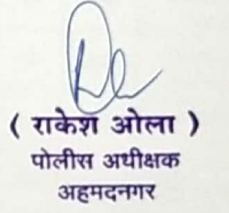 ( राकेश ओला )
पोलीस अधीक्षक
अहमदनगर